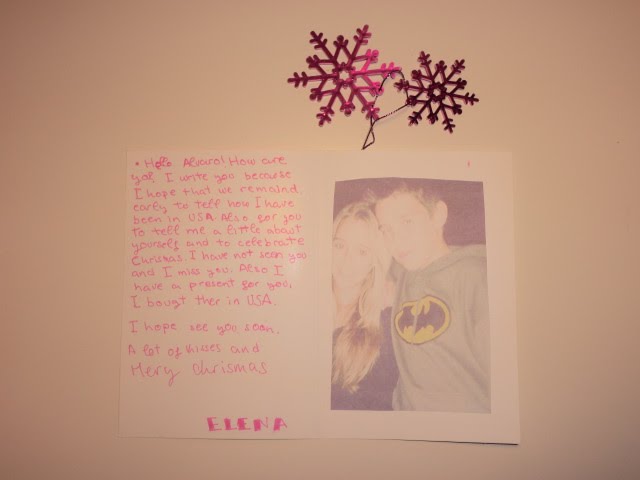 • Hello Alvaro! How are
you?, I write you because
I hope that we remaind
early to tell how I have
been in USA. Also for you
to tell me a little about
yourself and to celebrate
Chrismas. I have not seen you
and I miss you. Also I
have a present for you,
I bougt ther in USA.
I hope see you soon.
A lot of kisses and
Mery chrismas
ELENA